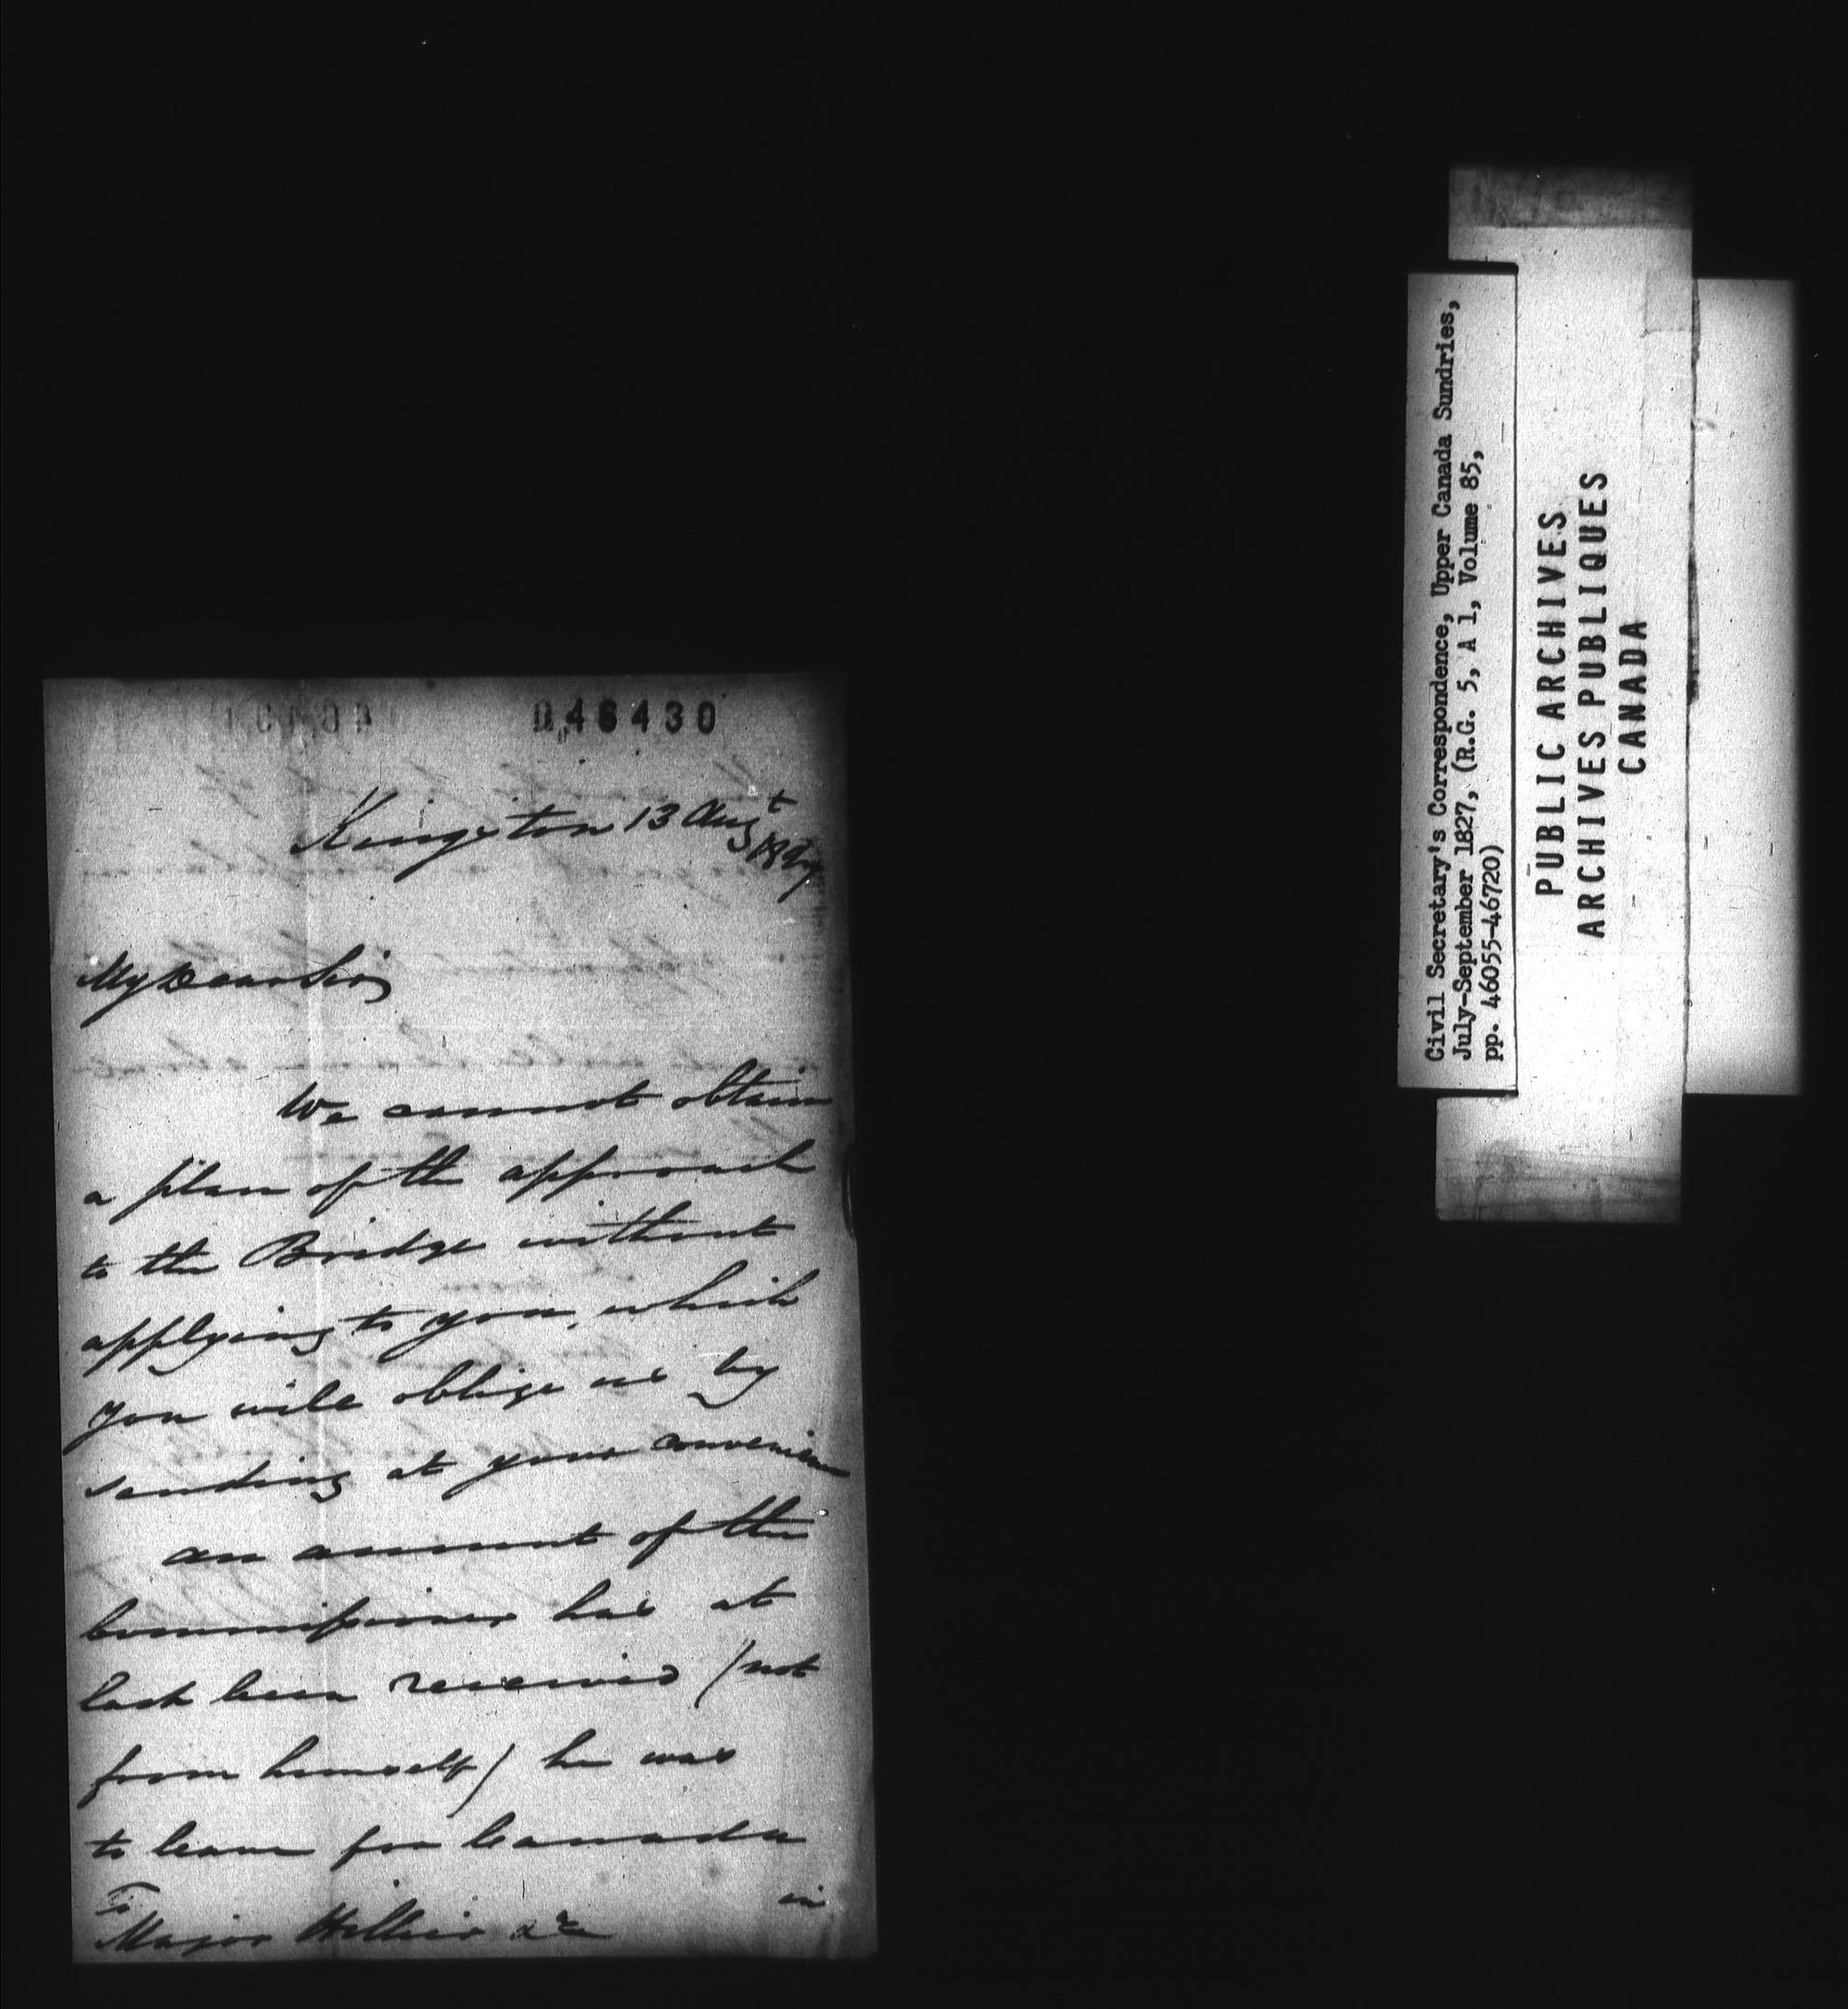 046430
Kingston 13 Augt
1827
My Dear Sir
We cannot obtain
a plan of the approach
to the Bridge without
applying to you, which
you will oblige us by
sending at your convenience
an account of the
Commissioner has at
last been received (not
from himself) he was
to leave for Canada
in
To
Major Hillier &c
Civil Secretary's Correspondence, Upper Canada Sundries,
July-September 1827, (R.G. 5, A 1, Volume 85,
pp. 46055-46720)
PUBLIC ARCHIVES
ARCHIVES PUBLIQUES
CANADA